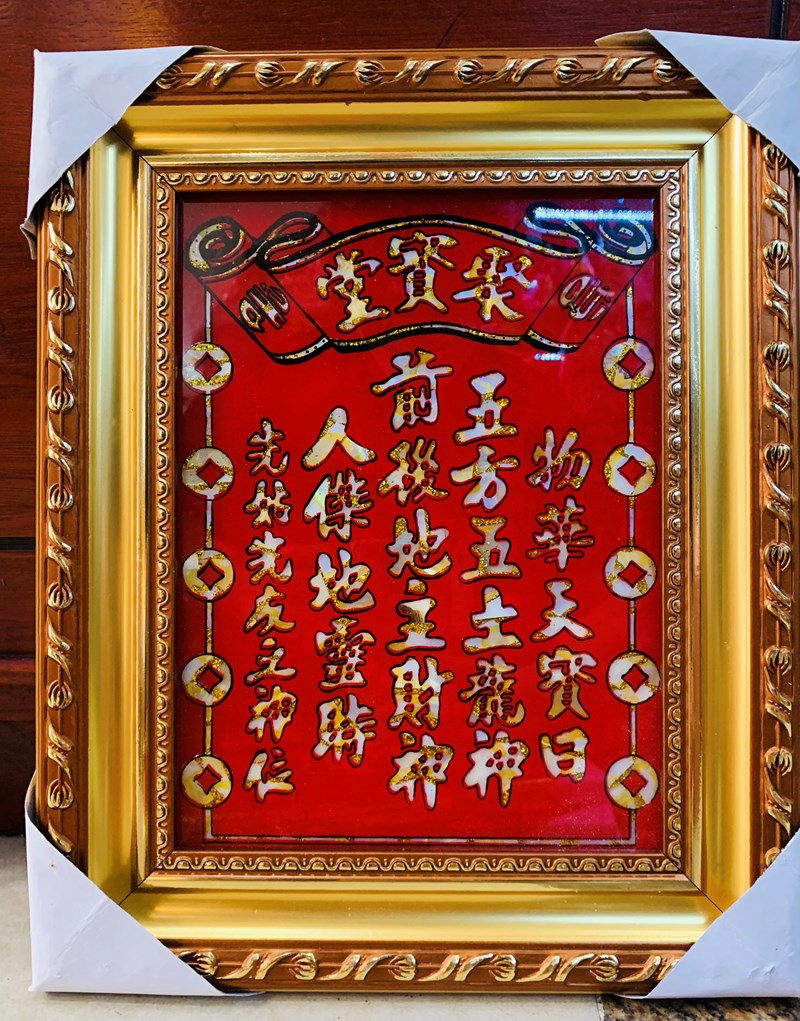 聚寶堂
物華天寶日
五方五土龍神
前後地主財神
人傑地靈時
先姑先友之神位